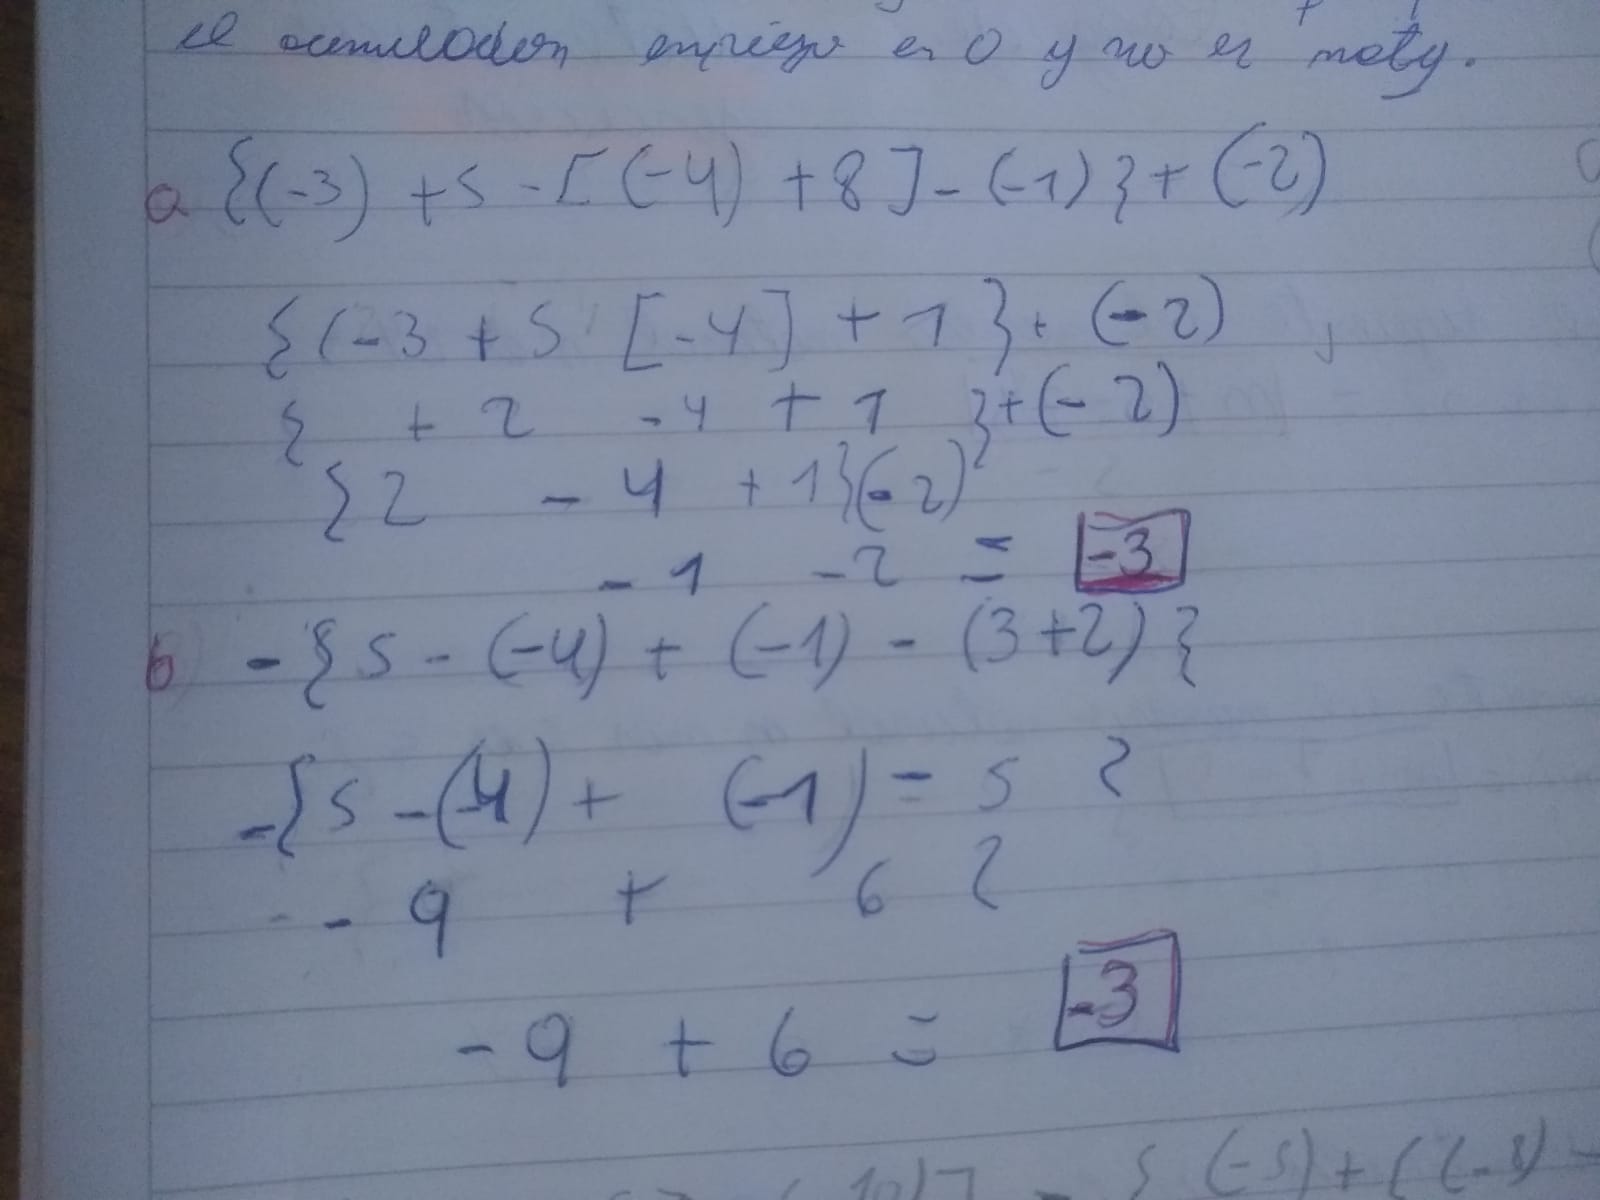 el acumulador empieza en 0 y no es
a {(-3) +5 -[(-4) +8]-(-1)}+(-2)
{(-3 +5 [-4] +1}+ (-2)
{ +2 -4 +1 }+(-2)
{2 -4 +1}(-2)
-1 -2 = -3
b) -{5-(-4)+(-1)-(3+2)}
-{5-(-4)+ (-1)- 5 }
- - 9 + 6 }
-9 + 6 = -3
5 (-5)+((-8)-